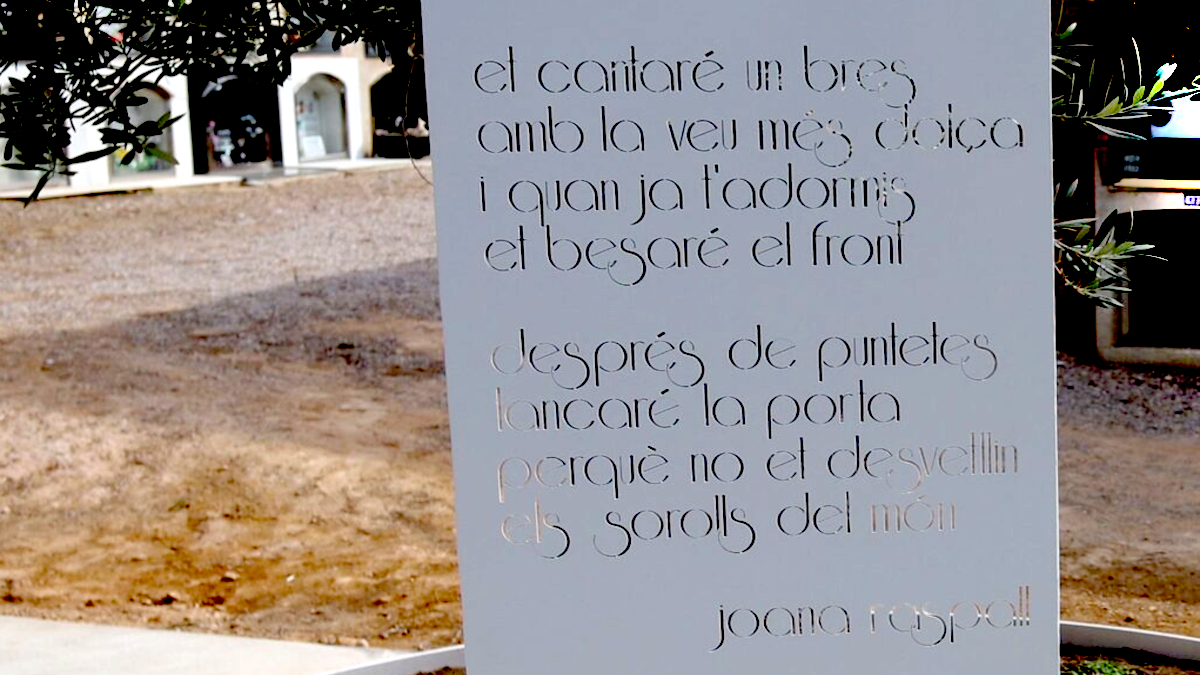 et cantaré un bres
amb la veu més dolça
i quan ja t'adormis
et besaré el front
després de puntetes
tancaré la porta
perquè no et desvetllin
els sorolls del món
joana raspall